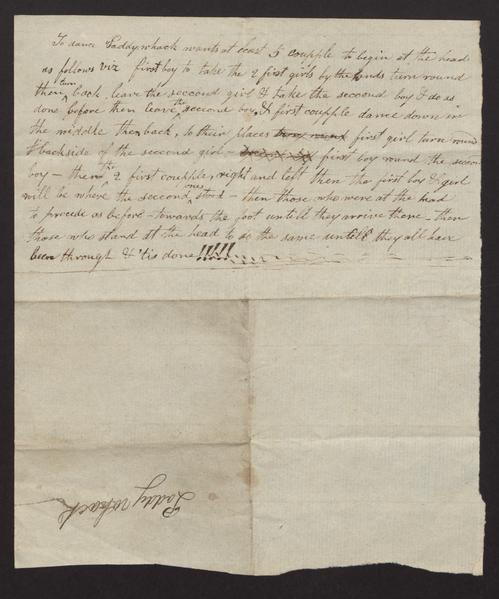 To dance Paddy whack wants at least 5 coupple to begin at the head
as follows viz first boy to take the 2 first girls by the hands turn round
then turn back, leave the seccond girl & take the seccond boy & do as
done before then leave the seccond boy, & first coupple dance down in
the middle then back, to their places first girl turn round
backside of the seccond girl – first boy round the seccon
boy – then the 2 first coupple, right and left then the first boy & girl
will be where the seccond ones stood – then those who were at the head
to procede as before – towards the foot untill they arive there – then
those who stand at the head to do the same untill they all have
been through & 'tis done !!!!!
Paddy whack